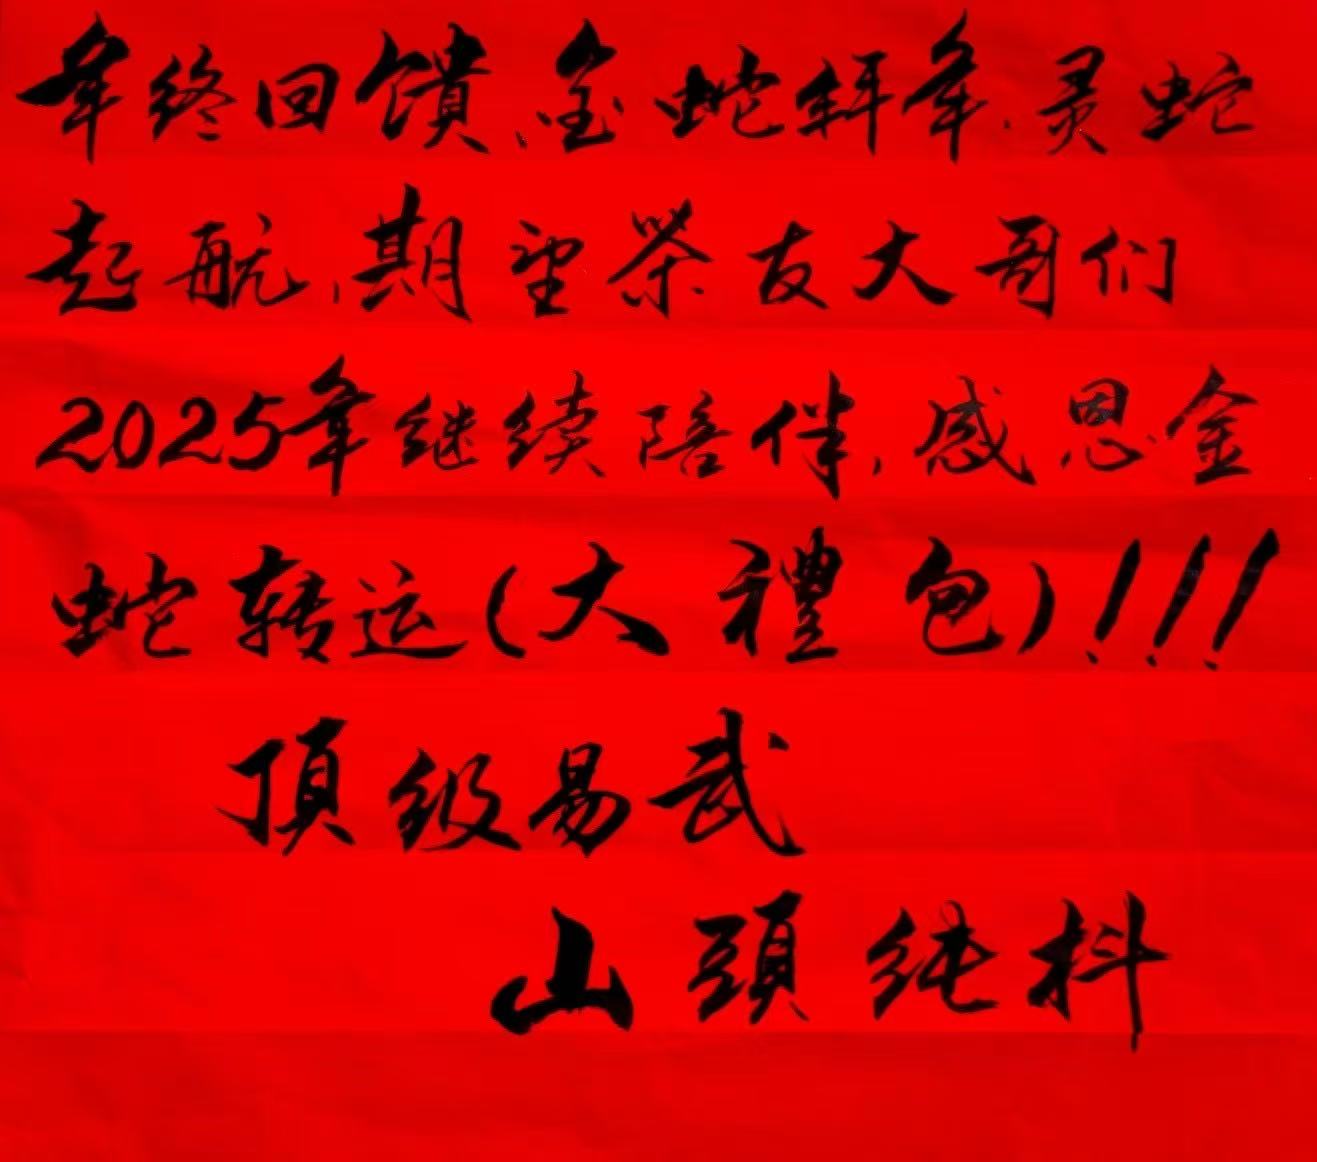 年终回馈、金蛇拜年,灵蛇
起航,期望茶友大哥们
2025年继续陪伴,感恩金
蛇转运(大禮包)!!!
頂级易武
山頭纯料